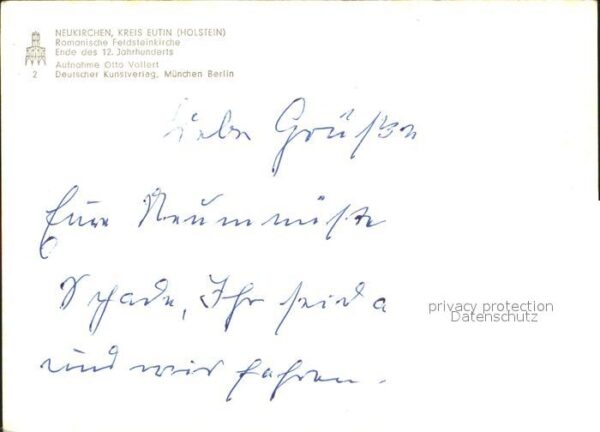 NEUKIRCHEN, KREIS EUTIN (HOLSTEIN)
Romanische Feldsteinkirche
Ende des 12. Jahrhunderts
Aufnahme Otto Vollert
2 Deutscher Kunstverlag, München Berlin
Liebe Grüße
Eure
Schade, Ihr seid a
und wir fahren.
privacy protection
Datenschutz